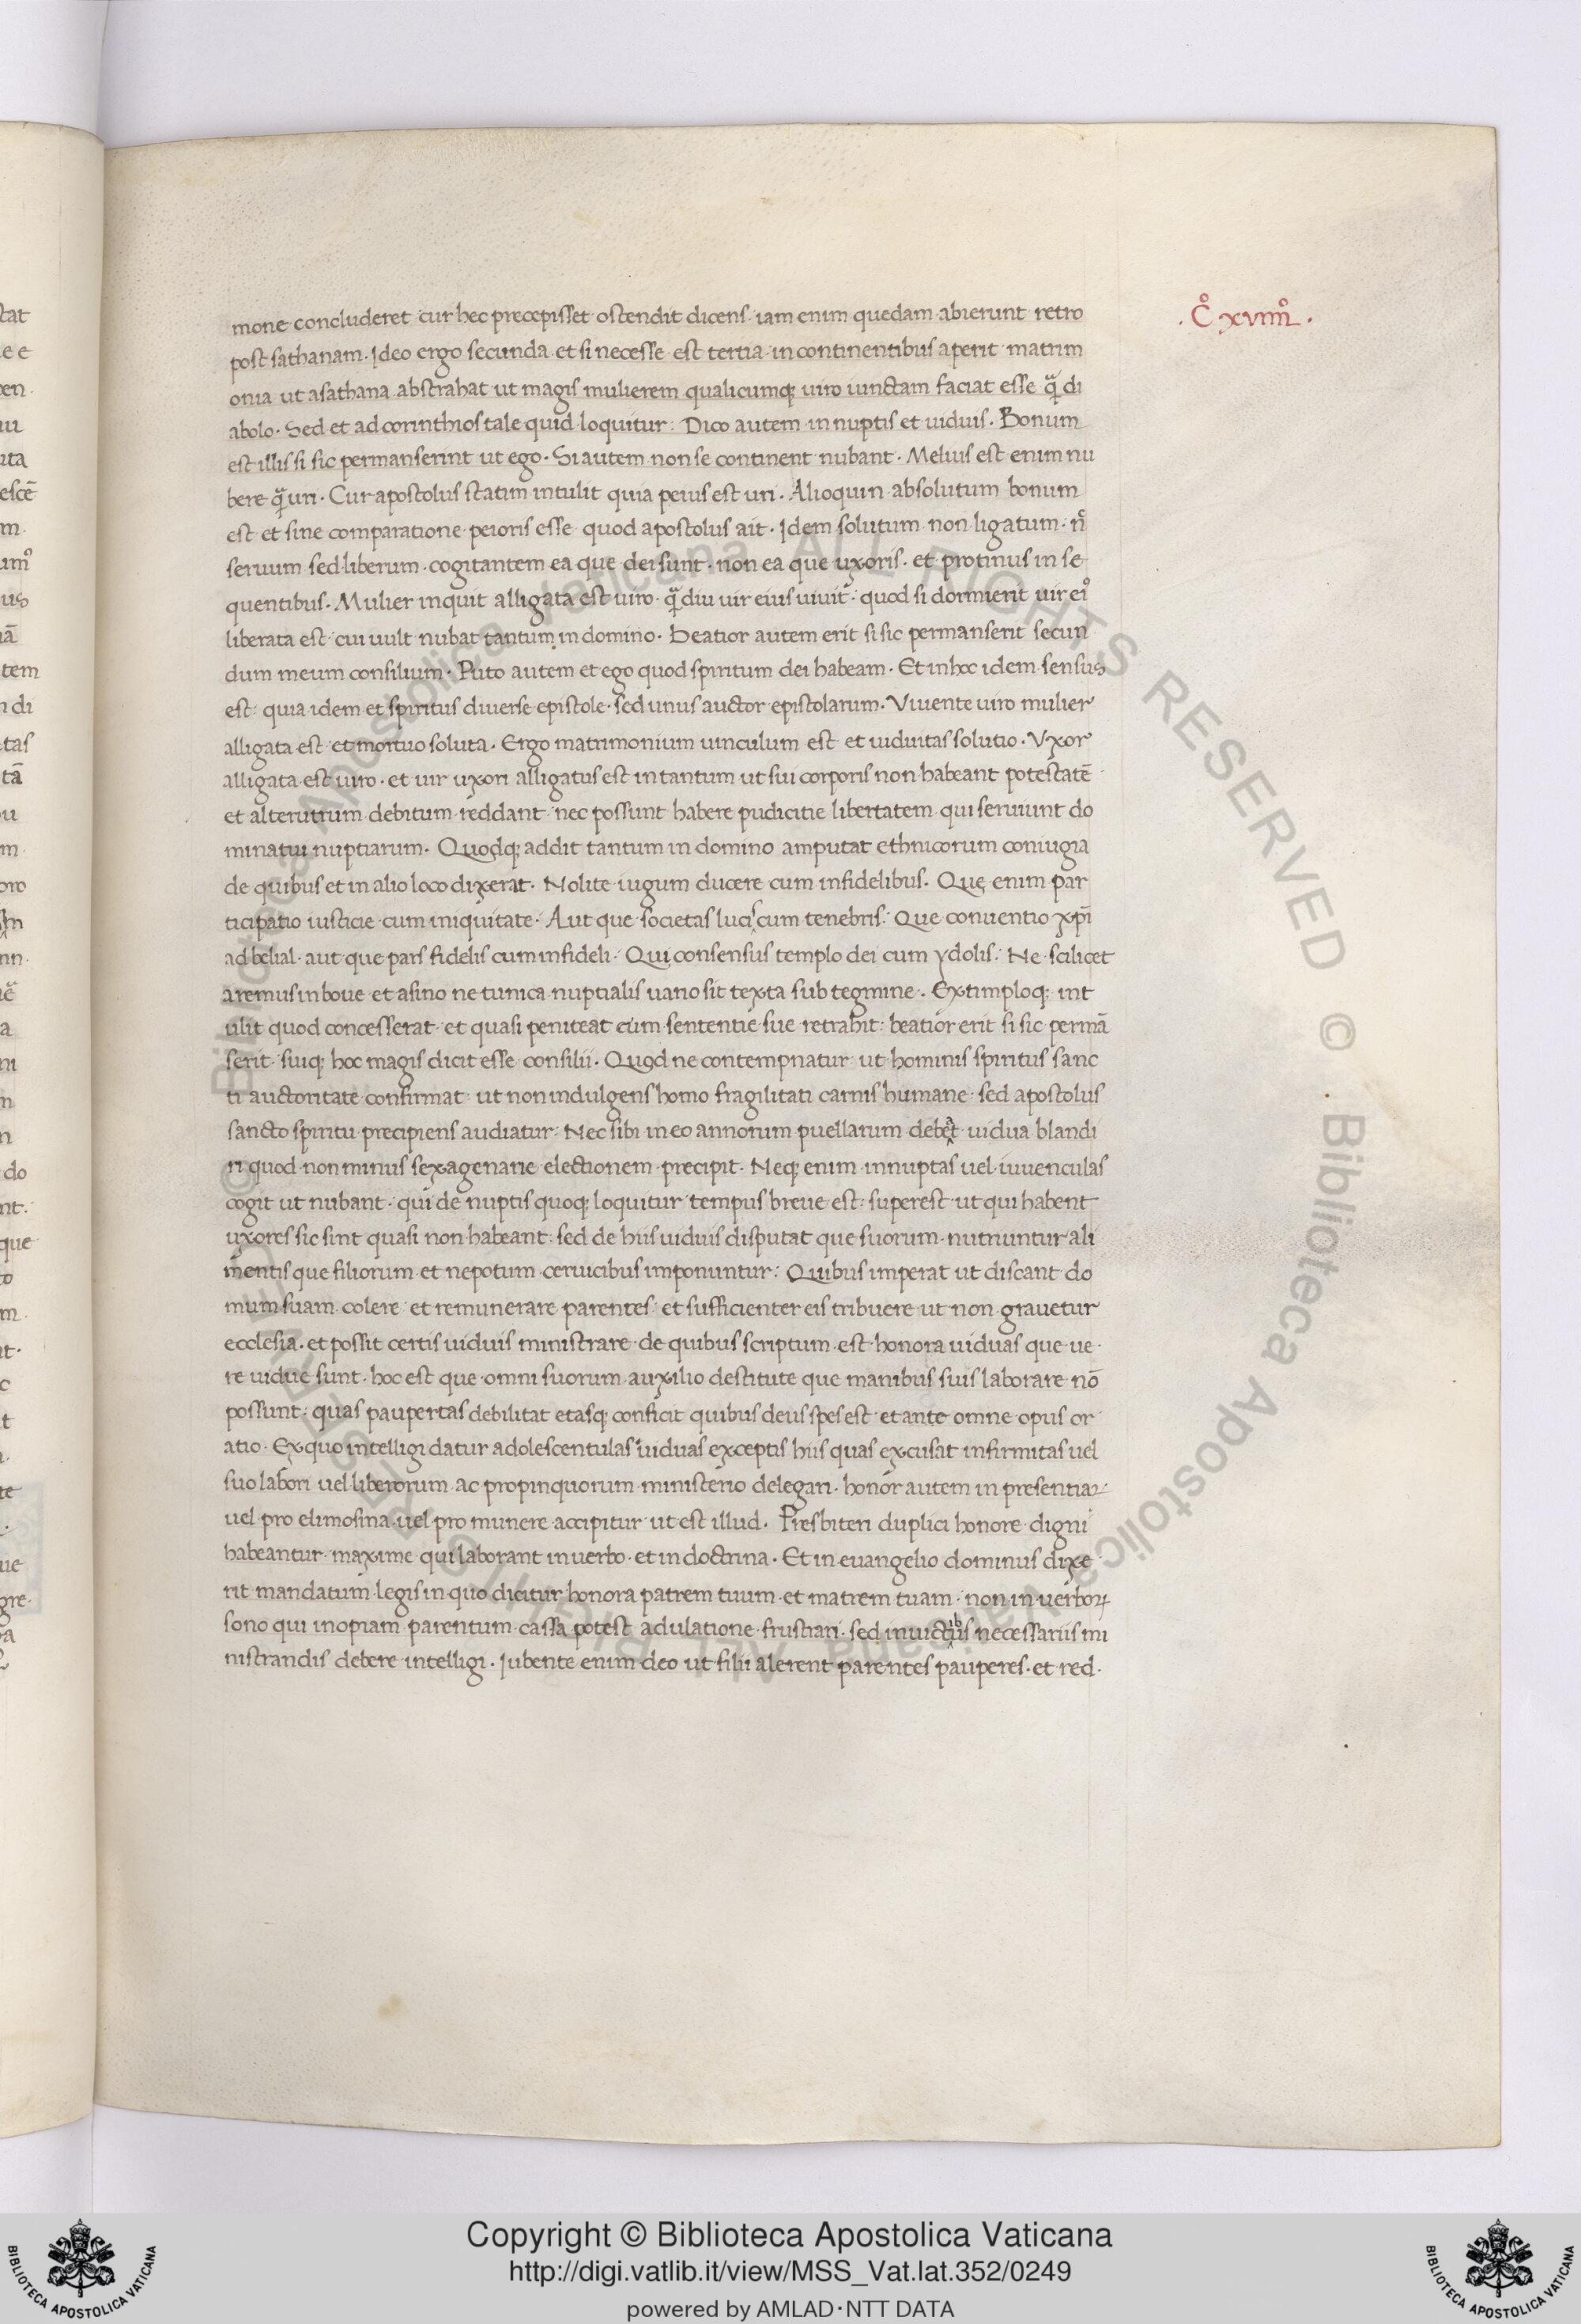 mone concluderet cur hec precepisset ostendit dicens. iam enim quedam abierunt retro
.C͛ xviiii͛.
post sathanam. Ideo ergo secunda et si necesse est tertia incontinentibus aperit matrim
onia ut asathana abstrahat ut magis mulierem qualicumq; uiro iunctam faciat esse qᷓ di
abolo. Sed et ad corinthios tale quid loquitur: Dico autem innuptis et uiduis. Bonum
est illis si sic permanserint ut ego. Si autem non se continent nubant. Melius est enim nu
bere qᷓ uri. Cur apostolus statim intulit quia peius est uri. Alioquin absolutum bonum
est et sine comparatione peioris esse quod apostolus ait. Idem solutum non ligatum. n̊
seruum sed liberum. cogitantem ea que dei sunt. non ea que uxoris. et protinus in se
quentibus. Mulier inquit alligata est uiro. qᷓ diu uir eius uiuit: quod si dormierit uir ei᾽
liberata est: cui uult nubat tantum in domino. Beatior autem erit si sic permanserit secun
dum meum consilium. Puto autem et ego quod spiritum dei habeam. Et in hoc idem sensus
est: quia idem et spiritus diuerse epistole. sed unus auctor epistolarum. Viuente uiro mulier
alligata est et mortuo soluta. Ergo matrimonium uinculum est et uiduitas solutio. Vxor
alligata est uiro. et uir uxori alligatus est in tantum ut sui corporis non habeant potestatē
et alterutrum debitum reddant nec possunt habere pudicitie libertatem qui seruiunt do
minatui nuptiarum. Quodq; addit tantum in domino amputat ethnicorum coniugia
de quibus et in alio loco dixerat. Nolite iugum ducere cum infidelibus. Que enim par
ticipatio iusticie cum iniquitate. Aut que societas lucis cum tenebris: Que conuentio xp̄i
ad belial. aut que pars fidelis cum infideli: Qui consensus templo dei cum ydolis: Ne scilicet
aremus in boue et asino ne tunica nuptialis uario sit texta subtegmine. Extimploq; int
ulit quod concesserat et quasi peniteat eum sententie sue retrahit: beatior erit si sic permā
serit. suiq; hoc magis dicit esse consilii. Quod ne contempnatur ut hominis spiritus sanc
ti auctoritate confirmat: ut non indulgens homo fragilitati carnis humane. sed apostolus
sancto spiritu precipiens audiatur: Nec sibi in eo annorum puellarum debeat uidua blandi
ri quod non minus sexagenarie electionem precipit. Neq; enim innuptas uel iuuenculas
cogit ut nubant. qui de nuptis quoq; loquitur tempus breue est: superest ut qui habent
uxores sic sint quasi non habeant: sed de hiis uiduis disputat que suorum nutriuntur ali
mentis que filiorum et nepotum ceruicibus imponuntur: Quibus imperat ut discant do
mum suam colere et remunerare parentes: et sufficienter eis tribuere ut non grauetur
ecclesia. et possit certis uiduis ministrare de quibus scriptum est honora uiduas que ue
re uidue sunt. hoc est que omni suorum auxilio destitute que manibus suis laborare nō
possunt: quas paupertas debilitat etasq; conficit quibus deus spes est et ante omne opus or
atio. Ex quo intelligi datur adolescentulas uiduas exceptis hiis quas excusat infirmitas uel
suo labori uel liberorum ac propinquorum ministerio delegari. honor autem in presentiaꝝ
uel pro elimosina uel pro munere accipitur ut est illud. Presbiteri duplici honore digni
habeantur. maxime qui laborant in uerbo. et in doctrina. Et in euangelio dominus dixe
rit mandatum legis in quo dicitur honora patrem tuum et matrem tuam. non in uerboꝝ
sono qui inopiam parentum cassa potest adulatione frustrari. sed in uictibus necessariis mi
nistrandis debere intelligi. Iubente enim deo ut filii alerent parentes pauperes. et red.
Copyright © Biblioteca Apostolica Vaticana
http://digi.vatlib.it/view/MSS_Vat.lat.352/0249
powered by AMLAD·NTT DATA